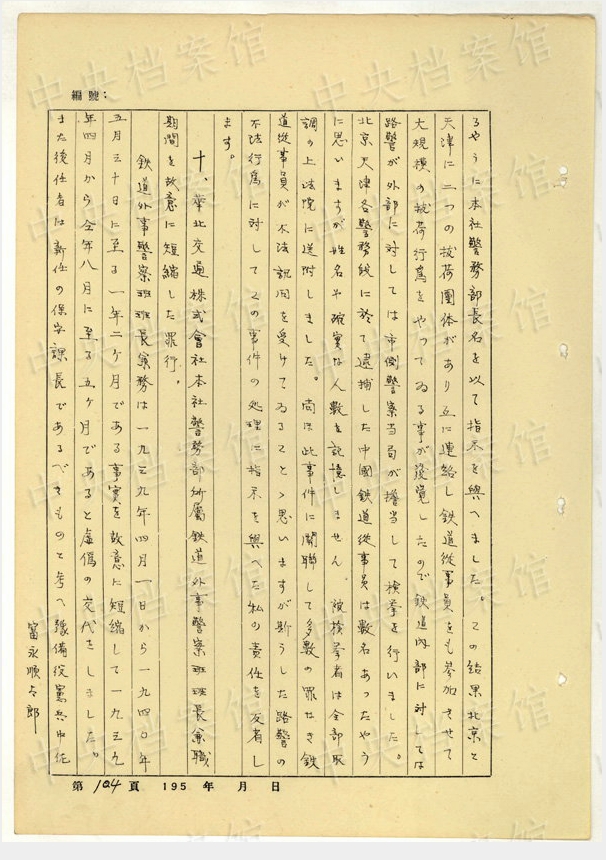 編號：
るやうに本社警務部長名を以て指示を與へました。この結果北京と
天津に二つの抜荷團体があり互に連絡し鉄道從事員をも参加させて
大規模の抜荷行爲をやつてゐる事が発覚したので鉄道内部に対しては
路警が外部に対しては市側警察当局が擔当して検挙を行いました。
北京天津各警務段に於て逮捕した中國鉄道從事員は数名あつたやう
に思いますが姓名や確実な人数を記憶しません、被検挙者は全部取
調の上法院に送附しました。尚ほ此事件に關聯して多数の罪なき鉄
道從事員が不法訊問を受けてゐることゝ思いますが斯うした路警の
不法行爲に対してこの事件の処理に指示を與へた私の責任を反省し
ます。
十、華北交通株式會社本社警務部所屬鉄道外事警察班班長兼職
期間を故意に短縮した罪行。
鉄道外事警察班班長兼務は一九三九年四月一日から一九四〇年
五月三十日に至る一年二ケ月である事実を故意に短縮して一九三九
年四月から仝年八月に至る五ケ月であると虚偽の交代をしました。
また後任者は新任の保安課長であるべきものと考へ豫備役憲兵中佐
富永順太郎
第104頁 195 年 月 日
中央档案馆